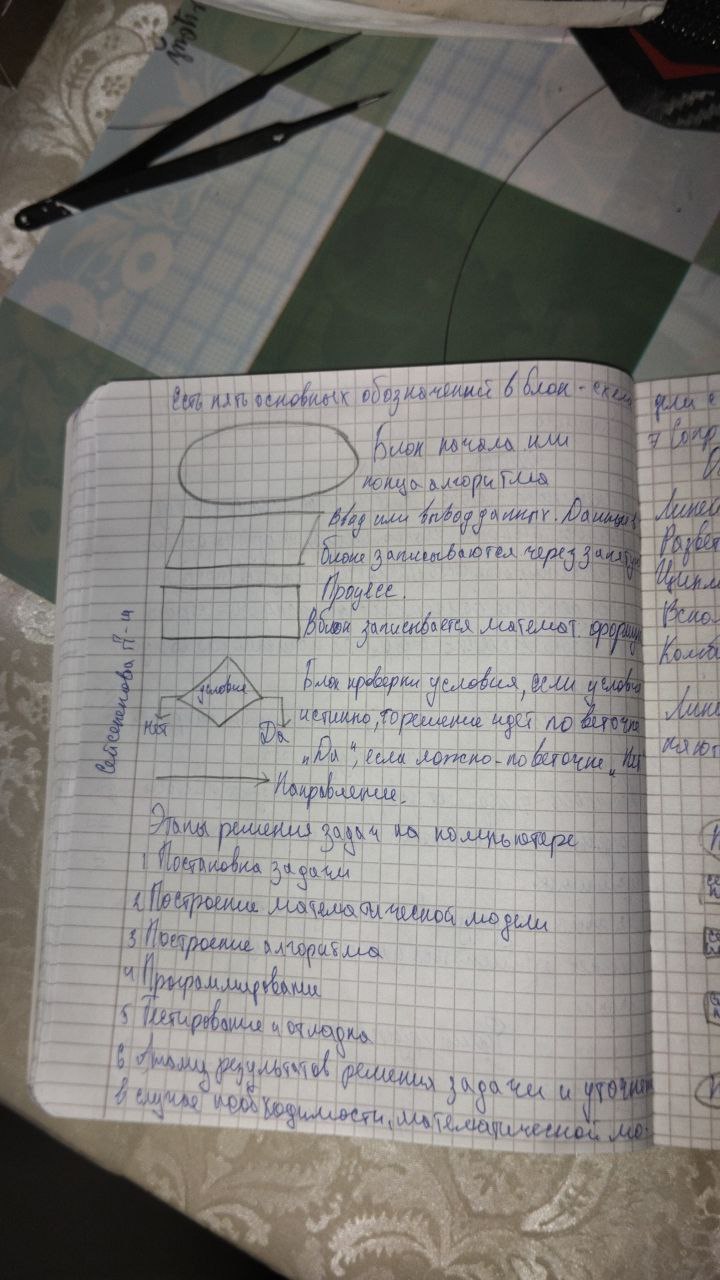 Есть пять основных обозначений в блок-схем
Блок начала или
конца алгоритма
Ввод или вывод данных. Данные в
блоке записываются через запятую
Процесс.
В блок записывается математ. формул
условия
Нет
Да
Блок проверки условия, если условие
истинно, то решение идет по веточке
„Да“, если ложно - по веточке „Нет
Направление.
Этапы решения задач на компьютере
1 Постановка задачи
2 Построение математической модели
3 Построение алгоритма
4 Программирование
5 Тестирование и отладка
6 Анализ результатов решения задачи и уточнен
в случае необходимости, математической мо-
П-14
дели с
7 Сопр
Линей
Развет
Цикл
Вспом
Комби
Лине
няют